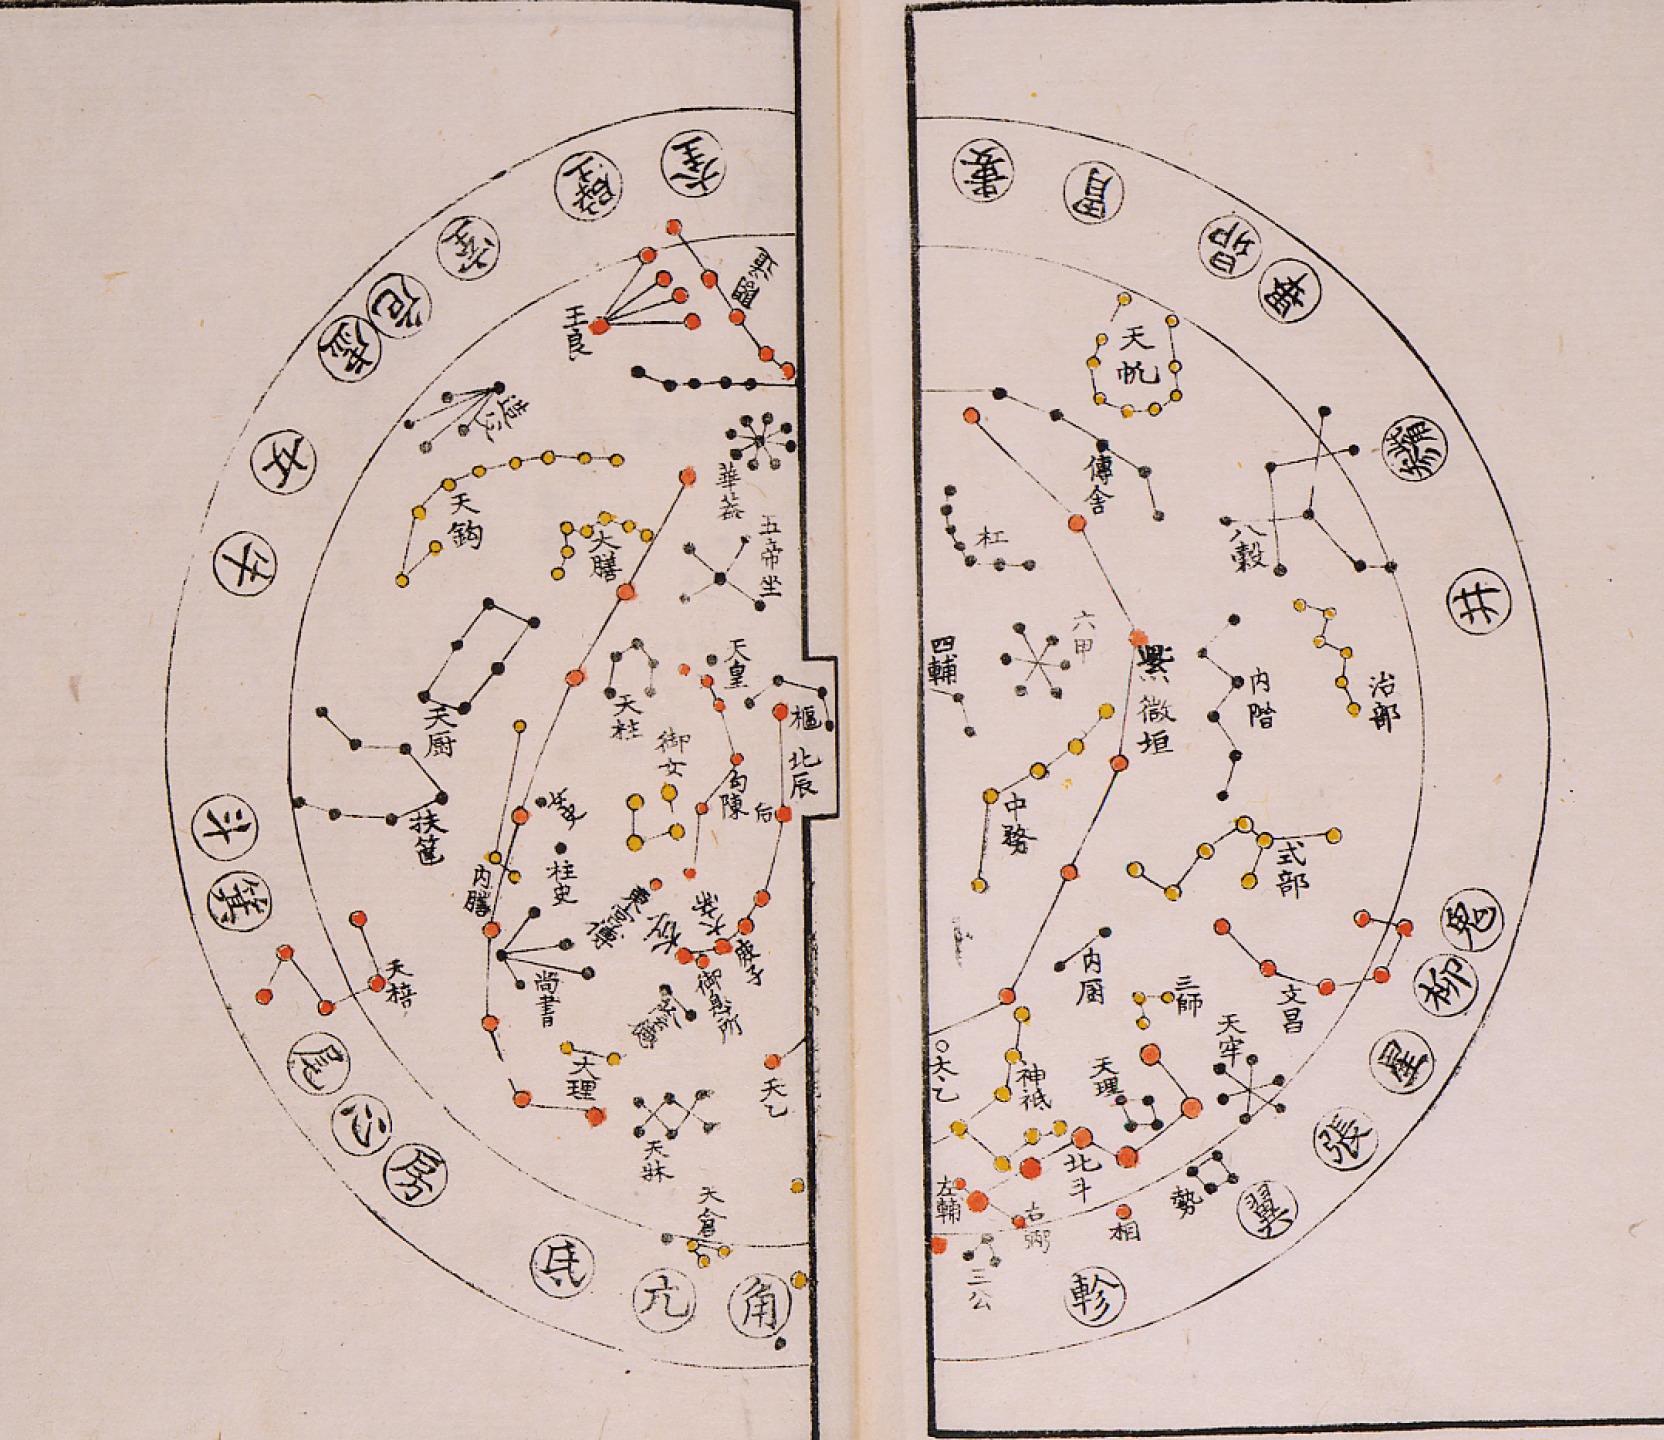 婁
胃
昴
畢
觜
參
井
鬼
柳
星
張
翼
軫
角
亢
氐
房
心
尾
箕
斗
牛
女
虛
危
室
壁
奎
天帆
傳舍
杠
八穀
六甲
四輔
紫微垣
内階
治部
中務
式部
内厨
三師
文昌
天牢
大乙
神祗
天理
北斗
左輔
右弼
相
勢
三公
閣道
王良
造父
華盖
天鈎
大膳
五帝坐
天皇
天柱
樞
北辰
御女
勾陳
后
天厨
扶筐
女史
柱史
内膳
東宮傅
太子
庶子
御息所
尚書
天棓
大理
天乙
天牀
天倉